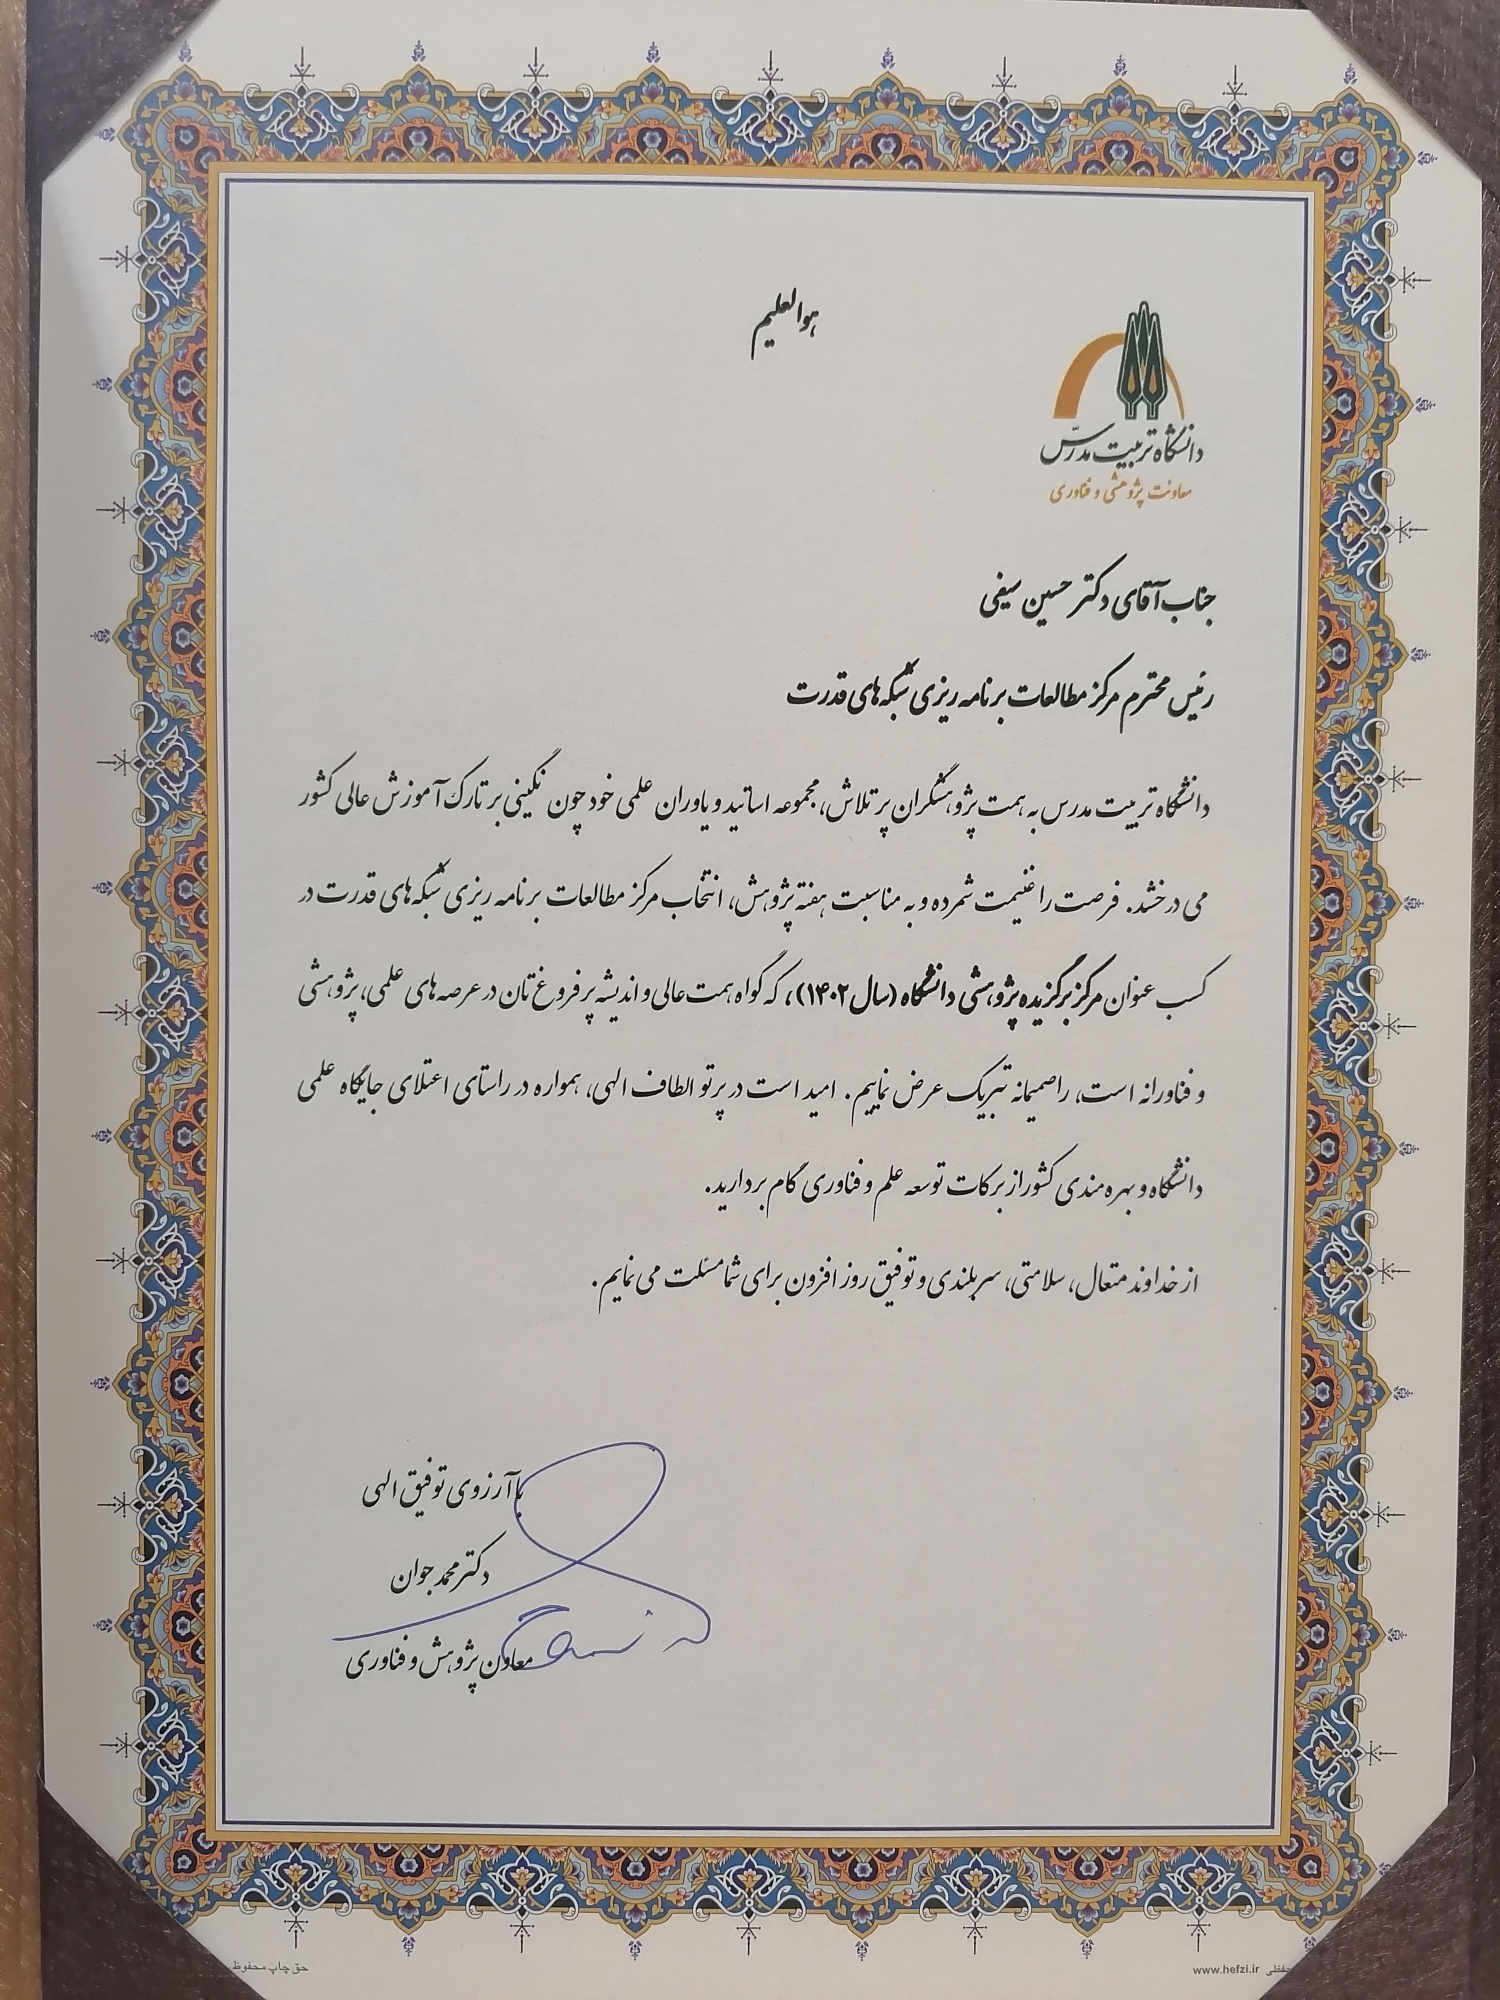 هوالعلیم
دانشگاه تربیت مدرّس
معاونت پژوهشی و فناوری
جناب آقای دکتر حسین سیفی
رئیس محترم مرکز مطالعات برنامه ریزی شبکه های قدرت
دانشگاه تربیت مدرس به همت پژوهشگران پر تلاش، مجموعه اساتید و یاوران علمی خود چون نگینی بر تارک آموزش عالی کشور
می درخشد. فرصت را غنیمت شمرده و به مناسبت هفته پژوهش، انتخاب مرکز مطالعات برنامه ریزی شبکه های قدرت در
کسب عنوان مرکز برگزیده پژوهشی دانشگاه (سال ۱۴۰۲)، که گواه همت عالی و اندیشه پر فروغ تان در عرصه های علمی، پژوهشی
و فناورانه است، را صمیمانه تبریک عرض نماییم. امید است در پرتو الطاف الهی، همواره در راستای اعتلای جایگاه علمی
دانشگاه و بهره مندی کشور از برکات توسعه علم و فناوری گام بردارید.
از خداوند متعال، سلامتی، سربلندی و توفیق روز افزون برای شما مسئلت می نمایم.
با آرزوی توفیق الهی
دکتر محمد جوان
معاون پژوهش و فناوری
حق چاپ محفوظ
www.hefzi.ir